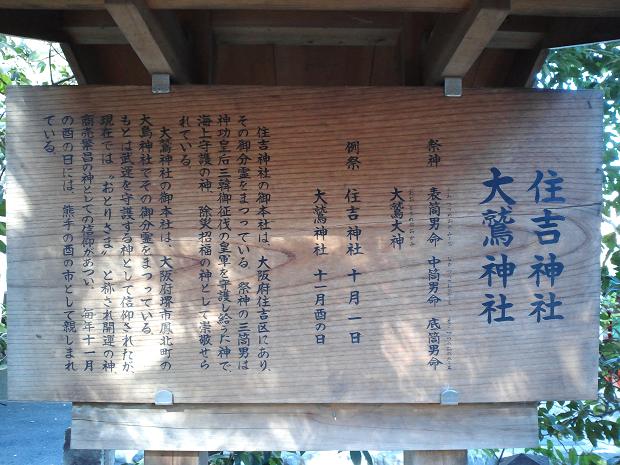 住吉神社
大鷲神社
祭神　表筒男命　中筒男命　底筒男命
大鷲大神
例祭　住吉神社　十月一日
大鷲神社　十一月酉の日
住吉神社の御本社は、大阪府住吉区にあり、
その御分霊をまつっている。祭神の三筒男は
神功皇后三韓御征伐の皇軍を守護し給った神で、
海上守護の神　除災招福の神として崇敬せら
れている。
大鷲神社の御本社は、大阪府堺市鳳北町の
大鳥神社でその御分霊をまつっている。
もとは武運を守護する神として信仰されたが、
現在では〝おとりさま〟と称され開運の神、
商売繁昌の神としての信仰があつい。毎年十一月
の酉の日には、熊手の酉の市として親しまれ
ている。